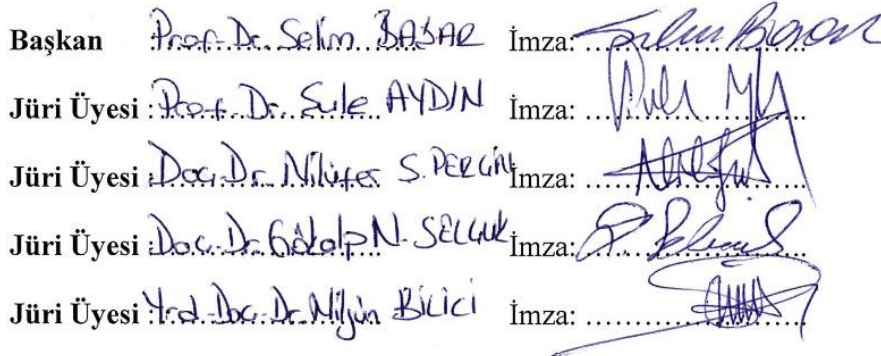 Başkan Prof. Dr. Selim BAŞAR İmza:
Jüri Üyesi : Prof. Dr. Şule AYDIN İmza:
Jüri Üyesi : Doç. Dr. Nilüfer S. PERÇİN İmza:
Jüri Üyesi : Doç. Dr. Gökalp N. SELÇUK İmza:
Jüri Üyesi : Yrd. Doç. Dr. Nilgün BİLİCİ İmza: